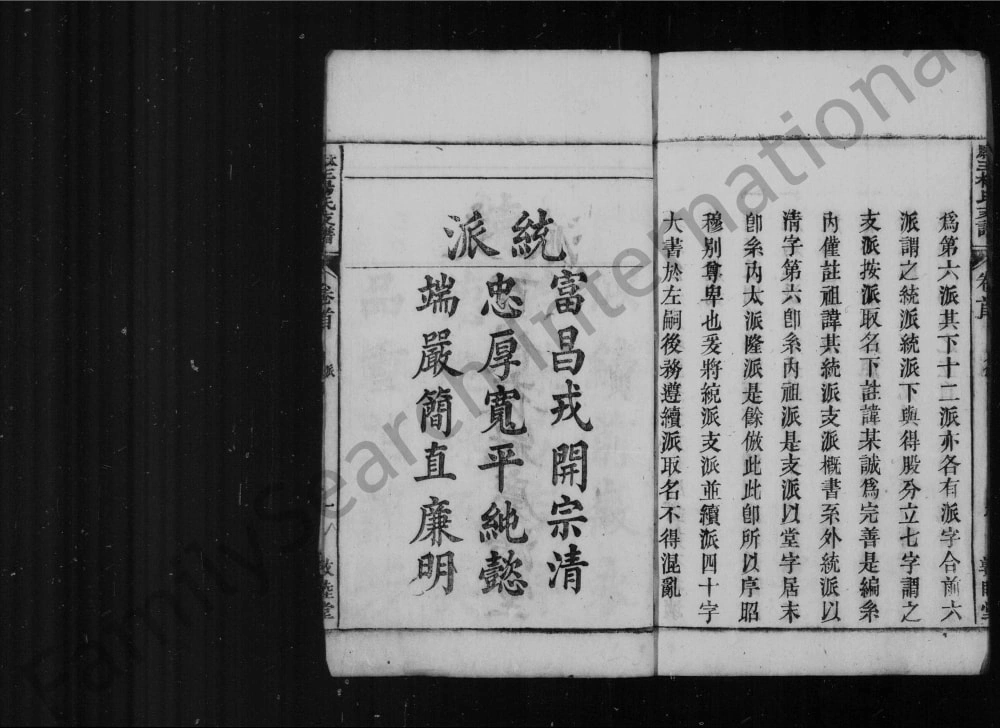 為第六派其下十二派亦各有派字合前六
派謂之統派統派下與得股分立七字謂之
支派按派取名下註諱某誠為完善是編系
內僅註祖諱其統派支派概書系外統派以
清字第六卽系內祖派是支派以堂字居末
卽系內太派隆派是餘倣此此卽所以序昭
穆別尊卑也爰將統派支派並續派四十字
大書於左嗣後務遵續派取名不得混亂
卷首
敦睦堂
統派
富昌戎開宗清
忠厚寬平純懿
端嚴簡直廉明
三楊氏支譜
卷首
派
一
敦睦堂
FamilySearch International